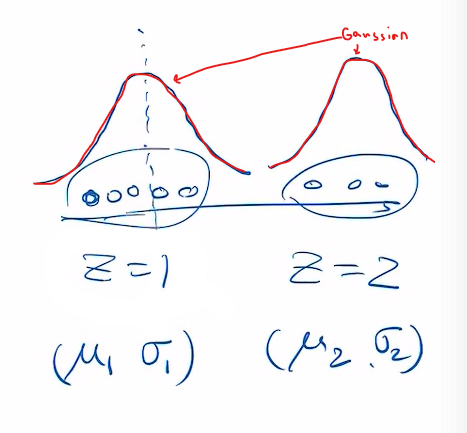 Gaussian
Z=1 Z=2
(μ₁ σ₁) (μ₂ σ₂)